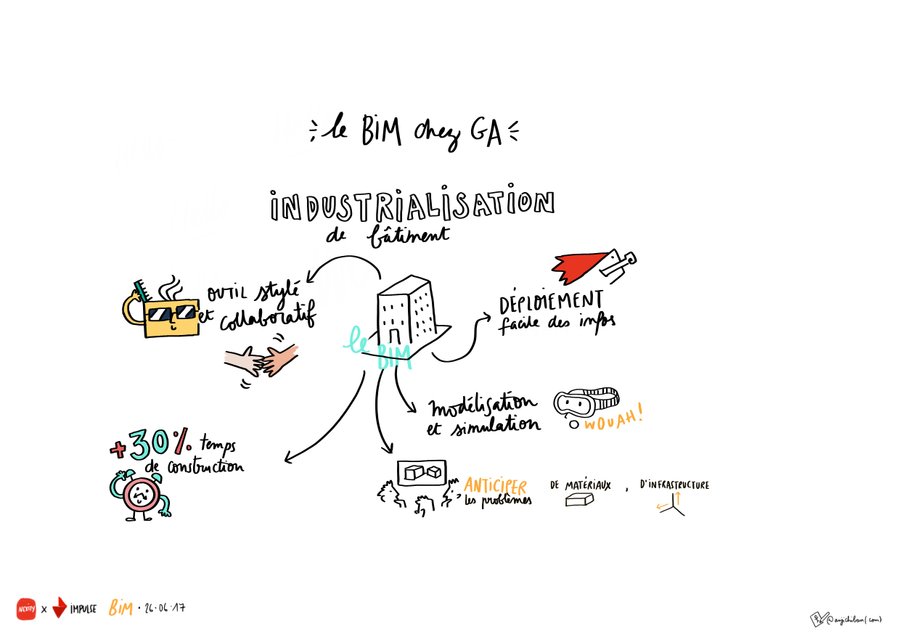 le BIM chez GA
INDUSTRIALISATION
de bâtiment
OUTIL stylé
et collaboratif
DÉPLOIEMENT
facile des infos
le BIM
modélisation
et simulation
WOUAH!
+30% temps
de construction
ANTICIPER
les problèmes
DE MATÉRIAUX , D'INFRASTRUCTURE
X IMPULSE BIM • 26·06·17